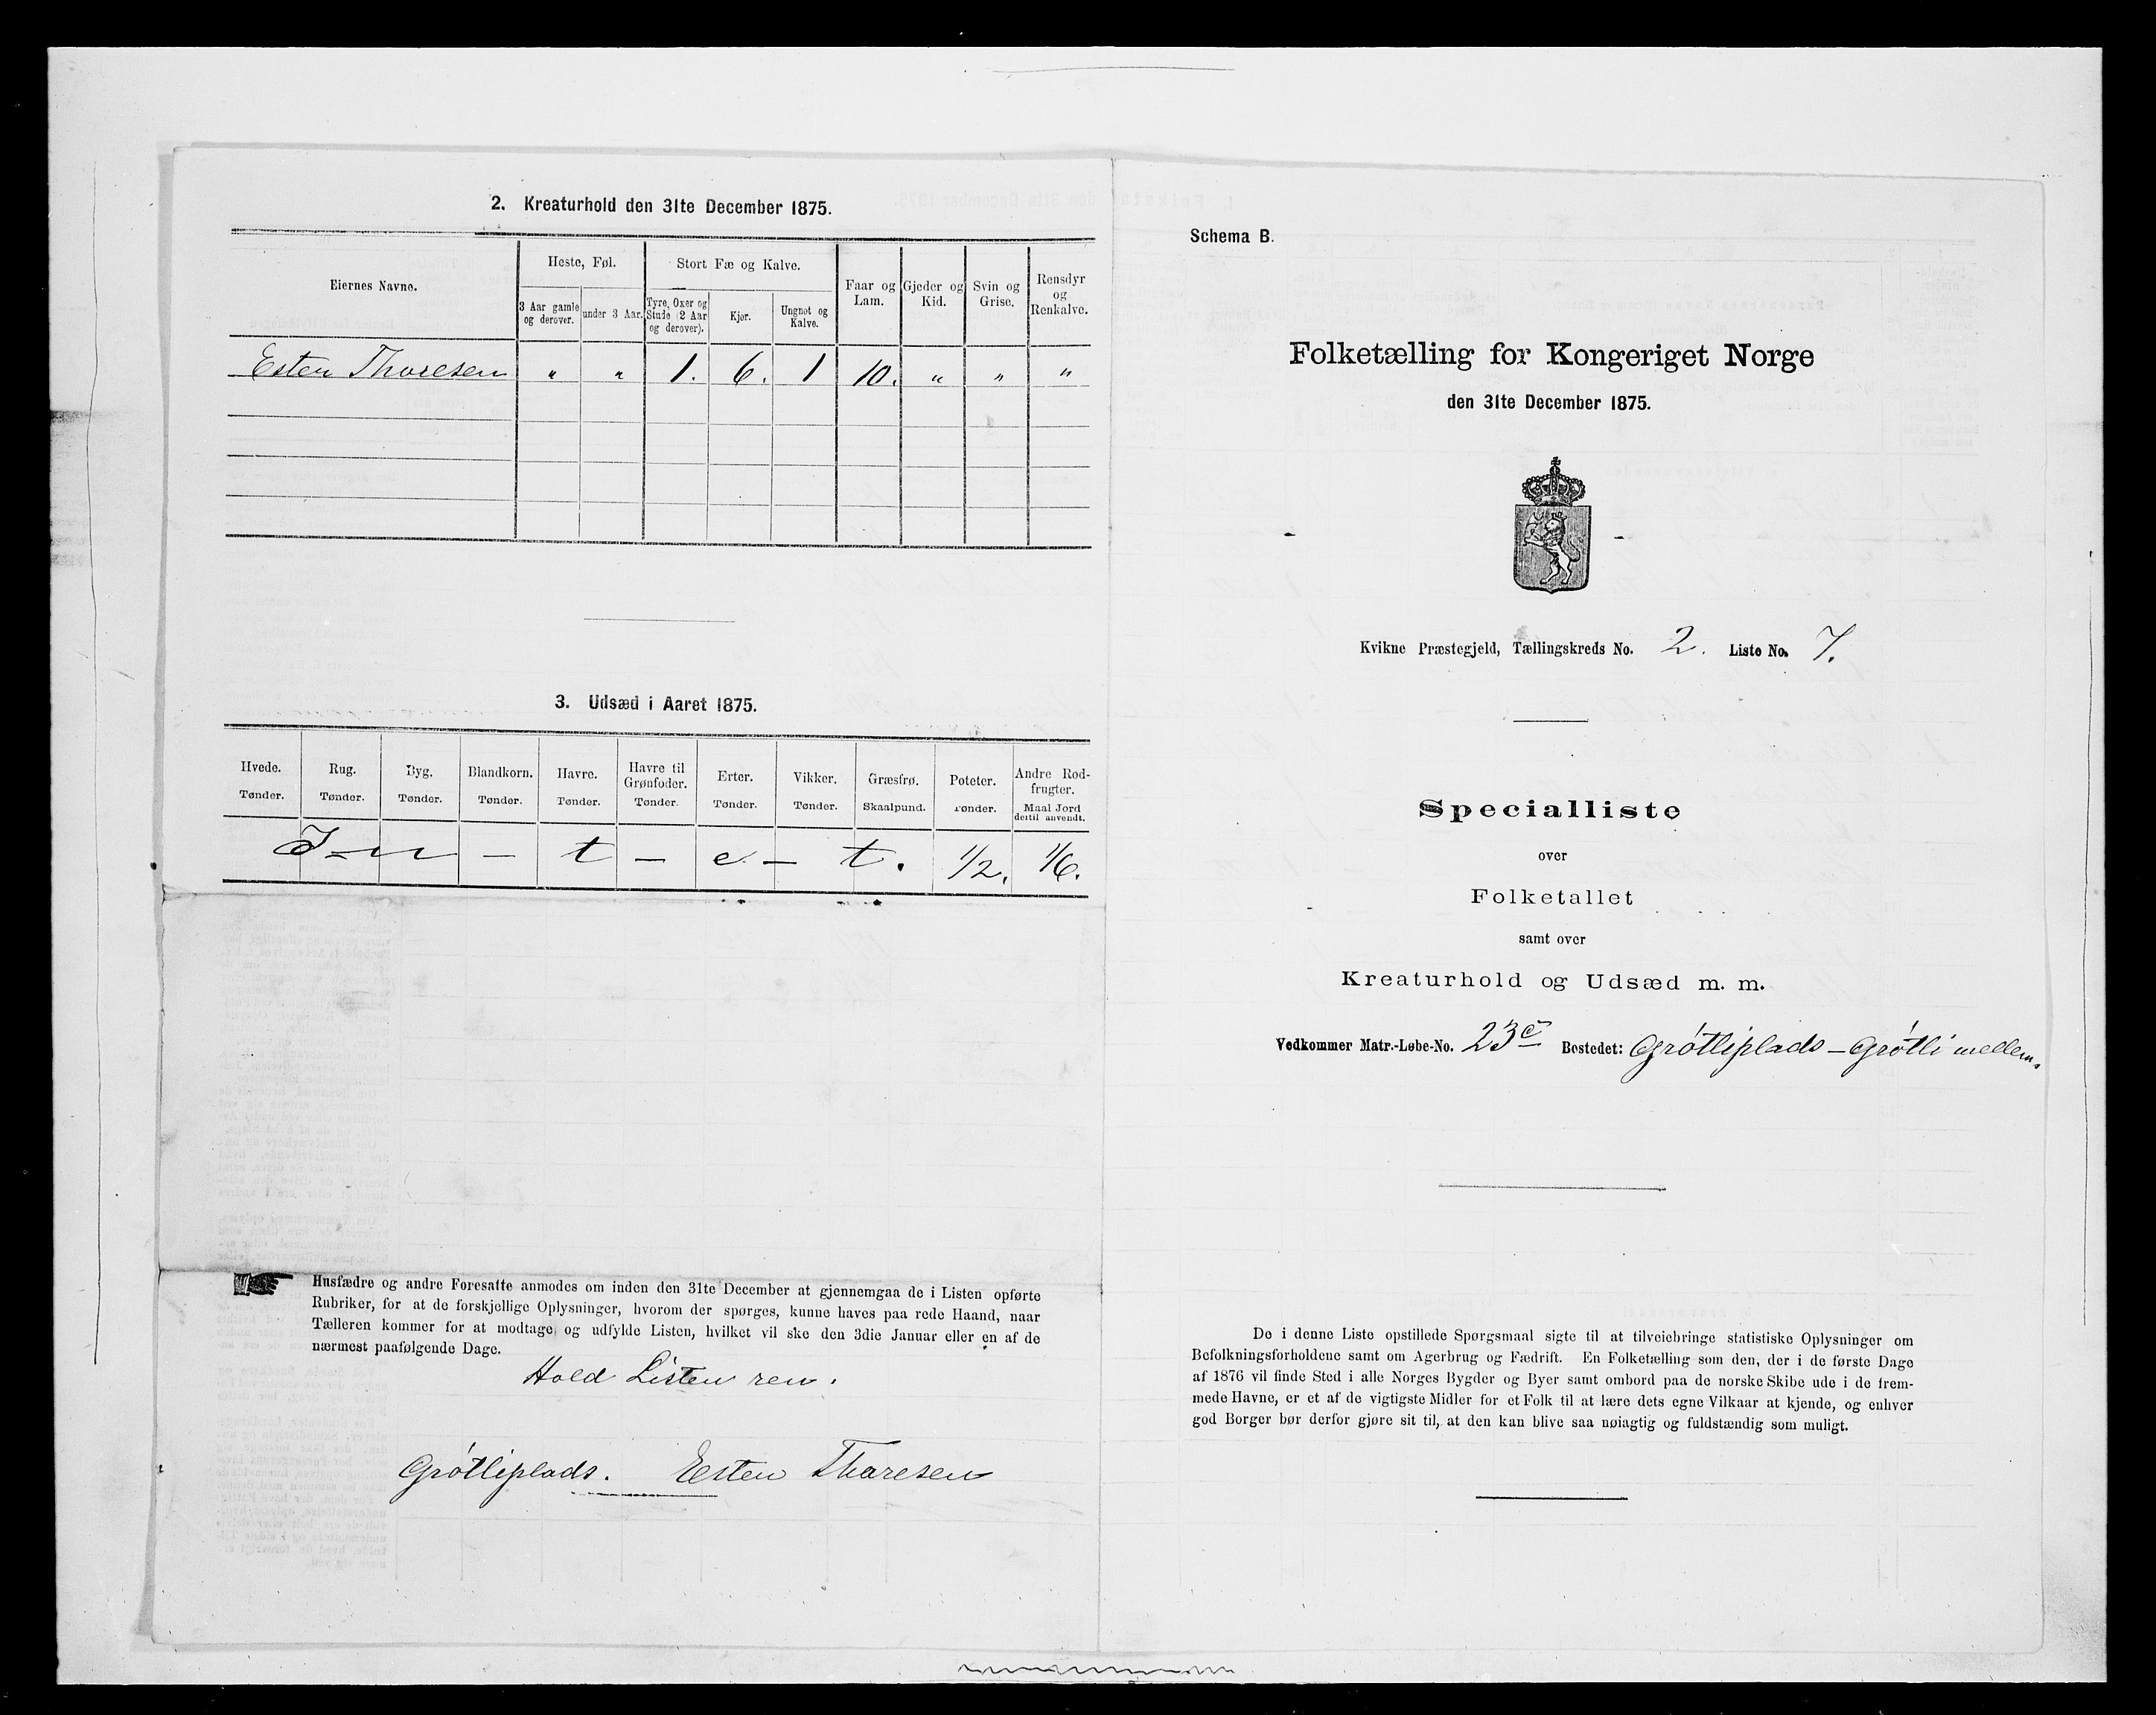 2. Kreaturhold den 31te December 1875.
Eiernes Navne.
Heste, Føl.
Stort Fæ og Kalve.
3 Aar gamle og derover.
under 3 Aar.
Tyre, Oxer og Stude (2 Aar og derover).
Kjør.
Ungnøt og Kalve.
Faar og Lam.
Gjeder og Kid.
Svin og Grise.
Rensdyr og Renkalve.
Esten Thoresen " " 1. 6. 1 10. " " "
3. Udsæd i Aaret 1875.
Hvede. Rug. Byg. Blandkorn. Havre. Havre til Grønfoder. Erter. Vikker. Græsfrø. Poteter. Andre Rodfrugter.
Tønder. Tønder. Tønder. Tønder. Tønder. Tønder. Tønder. Tønder. Skaalpund. Tønder. Maal Jord dertil anvendt.
I - n - t - e - t. 1/2. 1/6.
Husfædre og andre Foresatte anmodes om inden den 31te December at gjennemgaa de i Listen opførte
Rubriker, for at de forskjellige Oplysninger, hvorom der spørges, kunne haves paa rede Haand, naar
Tælleren kommer for at modtage og udfylde Listen, hvilket vil ske den 3die Januar eller en af de
nærmest paafølgende Dage.
Hold Listen ren.
Grötliplads. Esten Thoresen
Schema B.
Folketælling for Kongeriget Norge
den 31te December 1875.
Kvikne Præstegjeld, Tællingskreds No. 2. Liste No. 7.
Specialliste
over
Folketallet
samt over
Kreaturhold og Udsæd m. m.
Vedkommer Matr.-Løbe-No. 23c Bostedet: Grötliplads - Grötli mellem.
De i denne Liste opstillede Spørgsmaal sigte til at tilveiebringe statistiske Oplysninger om
Befolkningsforholdene samt om Agerbrug og Fædrift. En Folketælling som den, der i de første Dage
af 1876 vil finde Sted i alle Norges Bygder og Byer samt ombord paa de norske Skibe ude i de frem-
mede Havne, er et af de vigtigste Midler for et Folk til at lære dets egne Vilkaar at kjende, og enhver
god Borger bør derfor gjøre sit til, at den kan blive saa nøiagtig og fuldstændig som muligt.